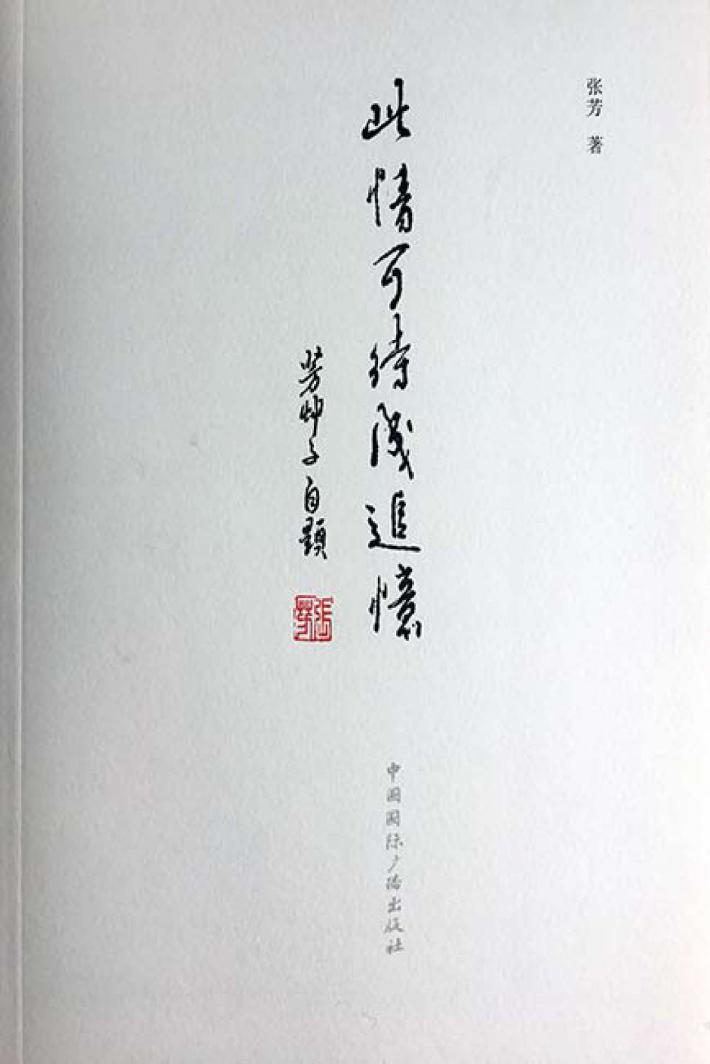 张芳 著
此情可待成追憶
芳艸子自題
張芳
中国国际广播出版社